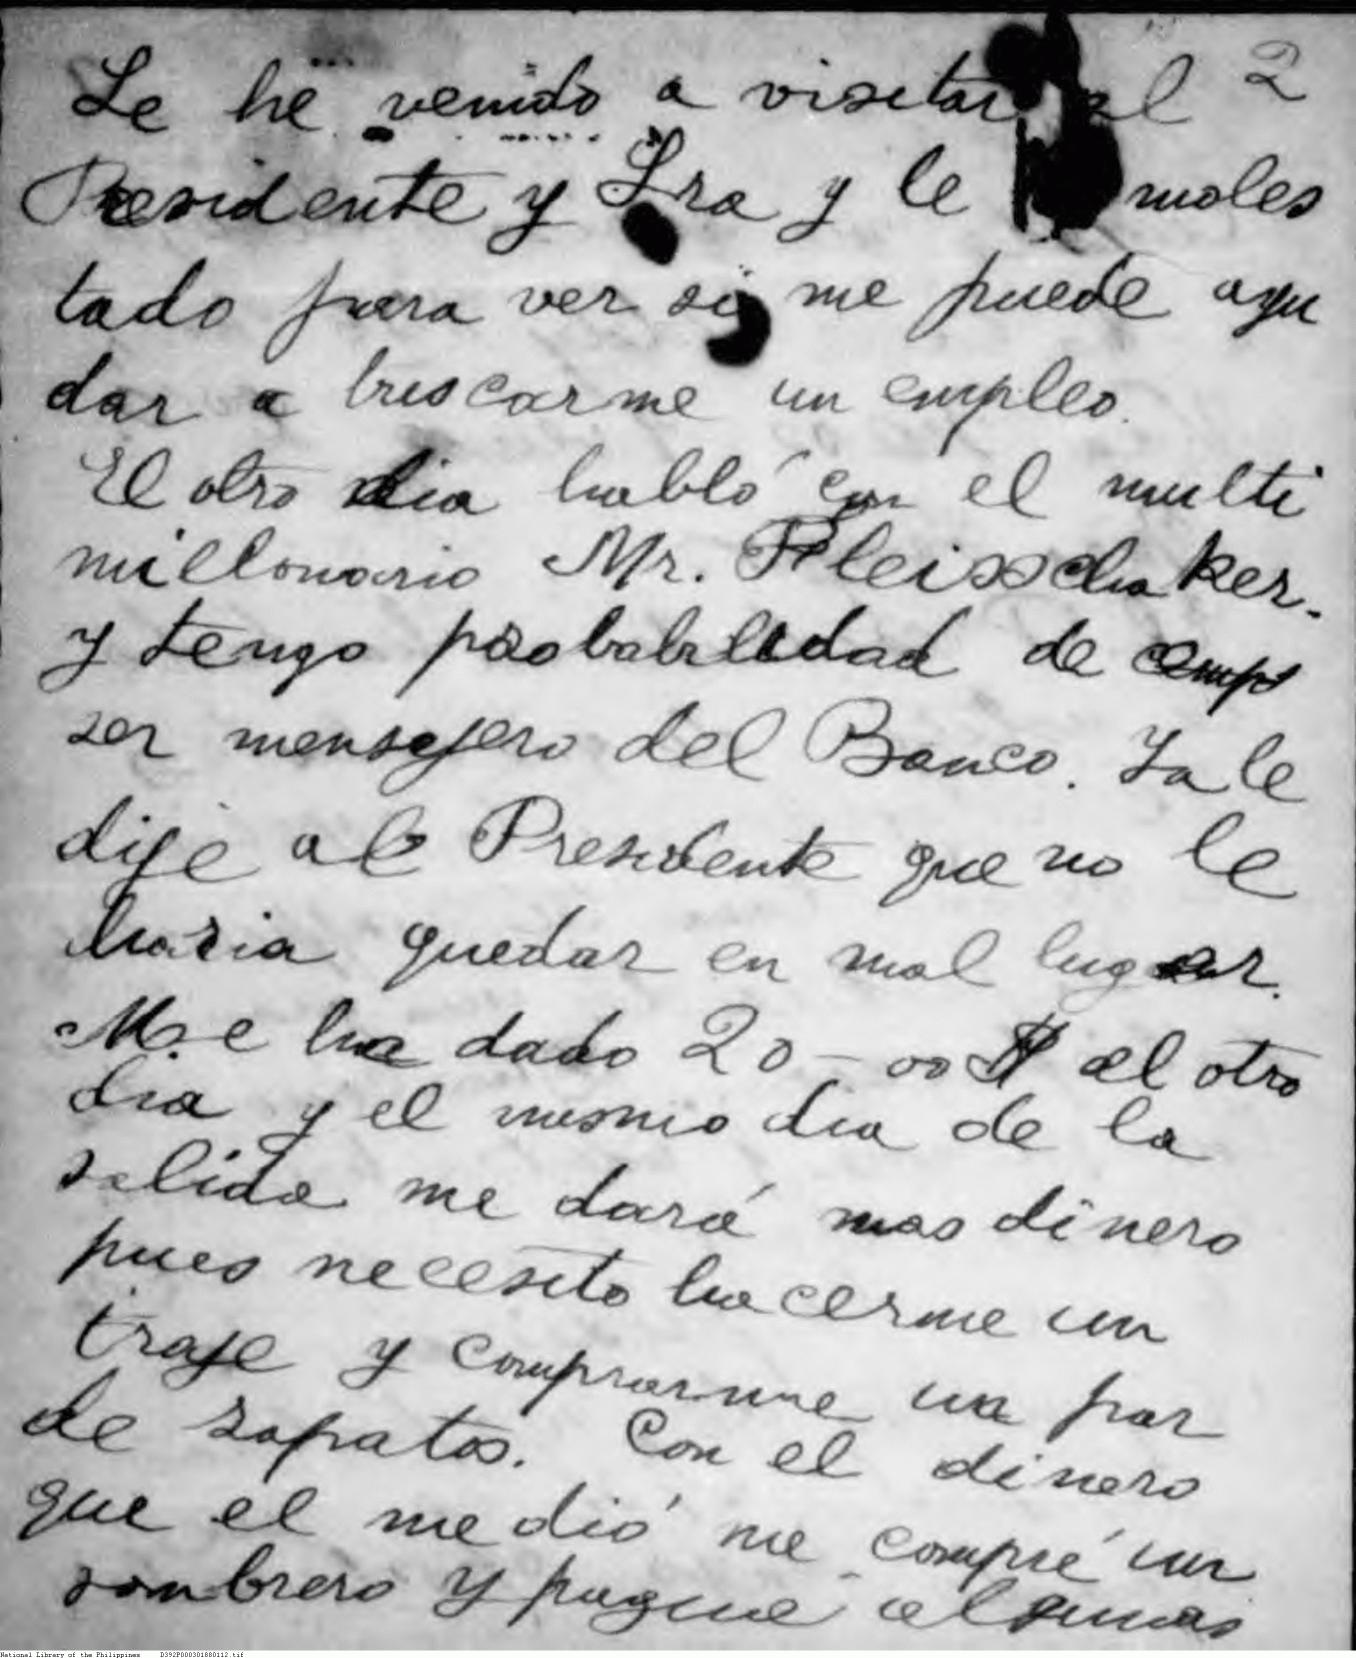 2
Le he venido a visitar al
Presidente y Sra y le moles
tado para ver si me puede ayu
dar a buscarme un empleo.
El otro dia habló con el multi
millonario Mr. Fleisschaker.
y tengo probabilidad de emp
ser mensajero del Banco. Ya le
dije al Presidente que no le
haria quedar en mal lugar.
Me ha dado 20-00 $ el otro
dia y el mismo dia de la
salida me dará mas dinero
pues necesito hacerme un
traje y comprarme un par
de zapatos. Con el dinero
que el me dió me compré un
sombrero y pague algunas
National Library of the Philippines D392P000301880112.tif